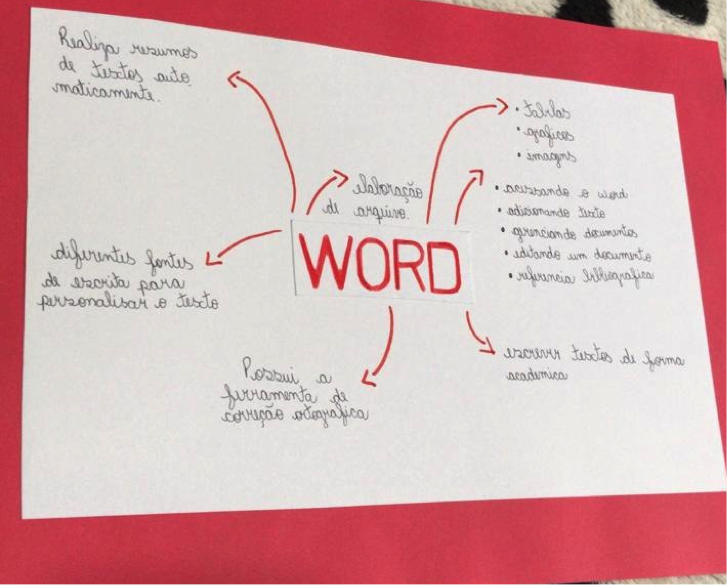 Realiza resumos
de textos auto
maticamente.
• tablas
• graficos
• imagens
elaboração
de arquivo.
• acessando o word
• adicionando texto
• gerenciando documentos
• editando um documento
• referencia bibliografica
WORD
diferentes fontes
de escrita para
personalisar o texto
Possui a
ferramenta de
correção ortografica
escrever textos de forma
academica